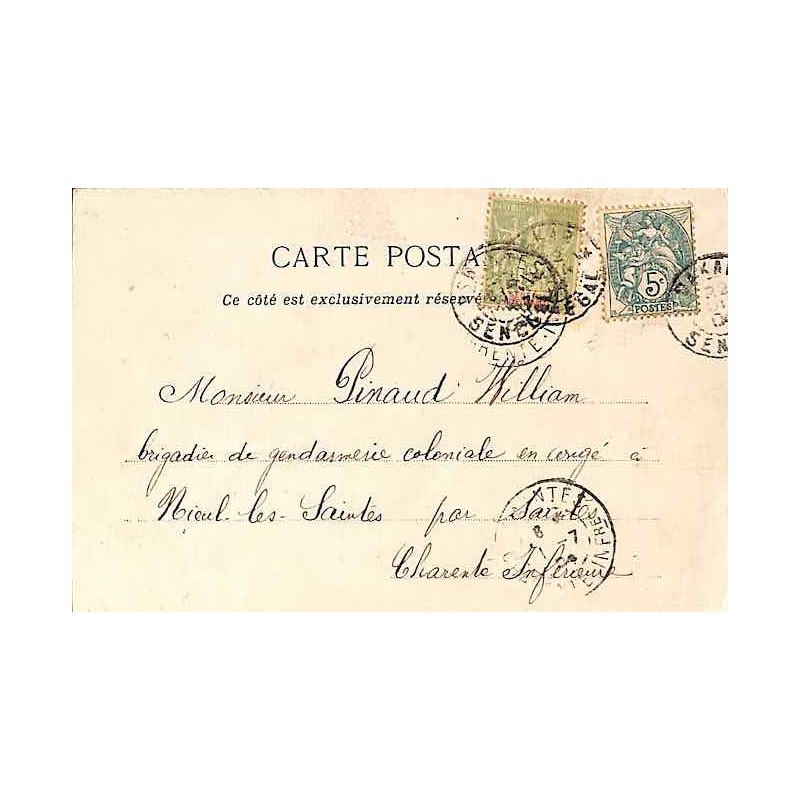 CARTE POSTA
Ce côté est exclusivement réservé
5c
POSTES
DAKAR
SENEGAL
SENEGAL
Monsieur Pinaud William
brigadier de gendarmerie coloniale en congé à
Nieul-les-Saintes par Saintes
Charente Inférieure